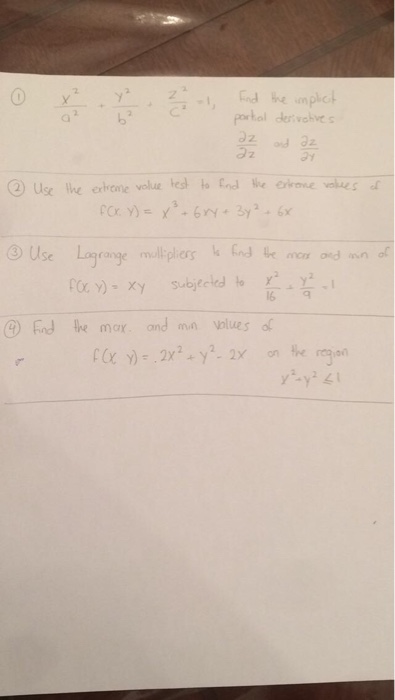 ① x²/a² + y²/b² + z²/c² = 1, Find the implicit
partial derivatives
∂z/∂z and ∂z/∂y
② Use the extreme value test to find the extreme values of
f(x, y) = x³ + 6xy + 3y² + 6x
③ Use Lagrange multipliers to find the max and min of
f(x, y) = xy subjected to x²/16 + y²/9 = 1
④ Find the max. and min values of
f(x y) = 2x² + y² - 2x on the region
x² + y² ≤ 1